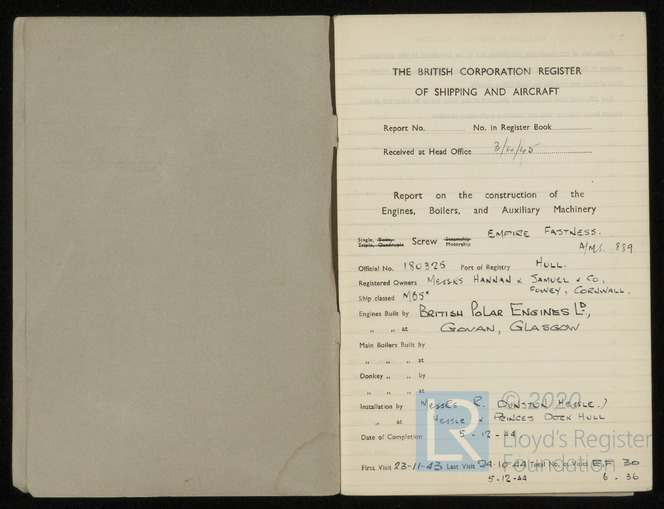 THE BRITISH CORPORATION REGISTER
OF SHIPPING AND AIRCRAFT
Report No. No. in Register Book
Received at Head Office 3/4/45
Report on the construction of the
Engines, Boilers, and Auxiliary Machinery
EMPIRE FASTNESS.
Single, Twin, Triple, Quadruple Screw Steamship Motorship
889
Official No. 180325 Port of Registry HULL.
Registered Owners MESSRS HANNAN & SAMUEL & CO,
Ship classed MBS* FOWEY, CORNWALL.
Engines Built by BRITISH POLAR ENGINES LD,
" " at GOVAN, GLASGOW
Main Boilers Built by
" " " at
Donkey " " by
" " " at
Installation by MESSRS R. DUNSTON HESSLE.)
" at HESSLE & PRINCES DOCK HULL
Date of Completion 5-12-44
First Visit 23-11-43 Last Visit 24-10-44 Total No. of Visits E.F 30
5-12-44 6 - 36
LR
© 2020
Lloyd's Register
Foundation